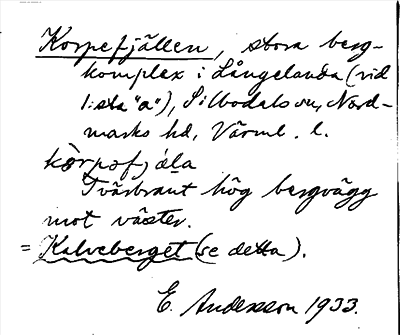 Korpefjällen, stora berg-
komplex i Långelanda (vid
1:sta "a"), Silbodals sn, Nord-
marks hd, Värml. l.
kò̀rpofjäla
Tvärbrant hög bergvägg
mot väster.
= Kalveberget (se detta).
E. Andersson 1933.